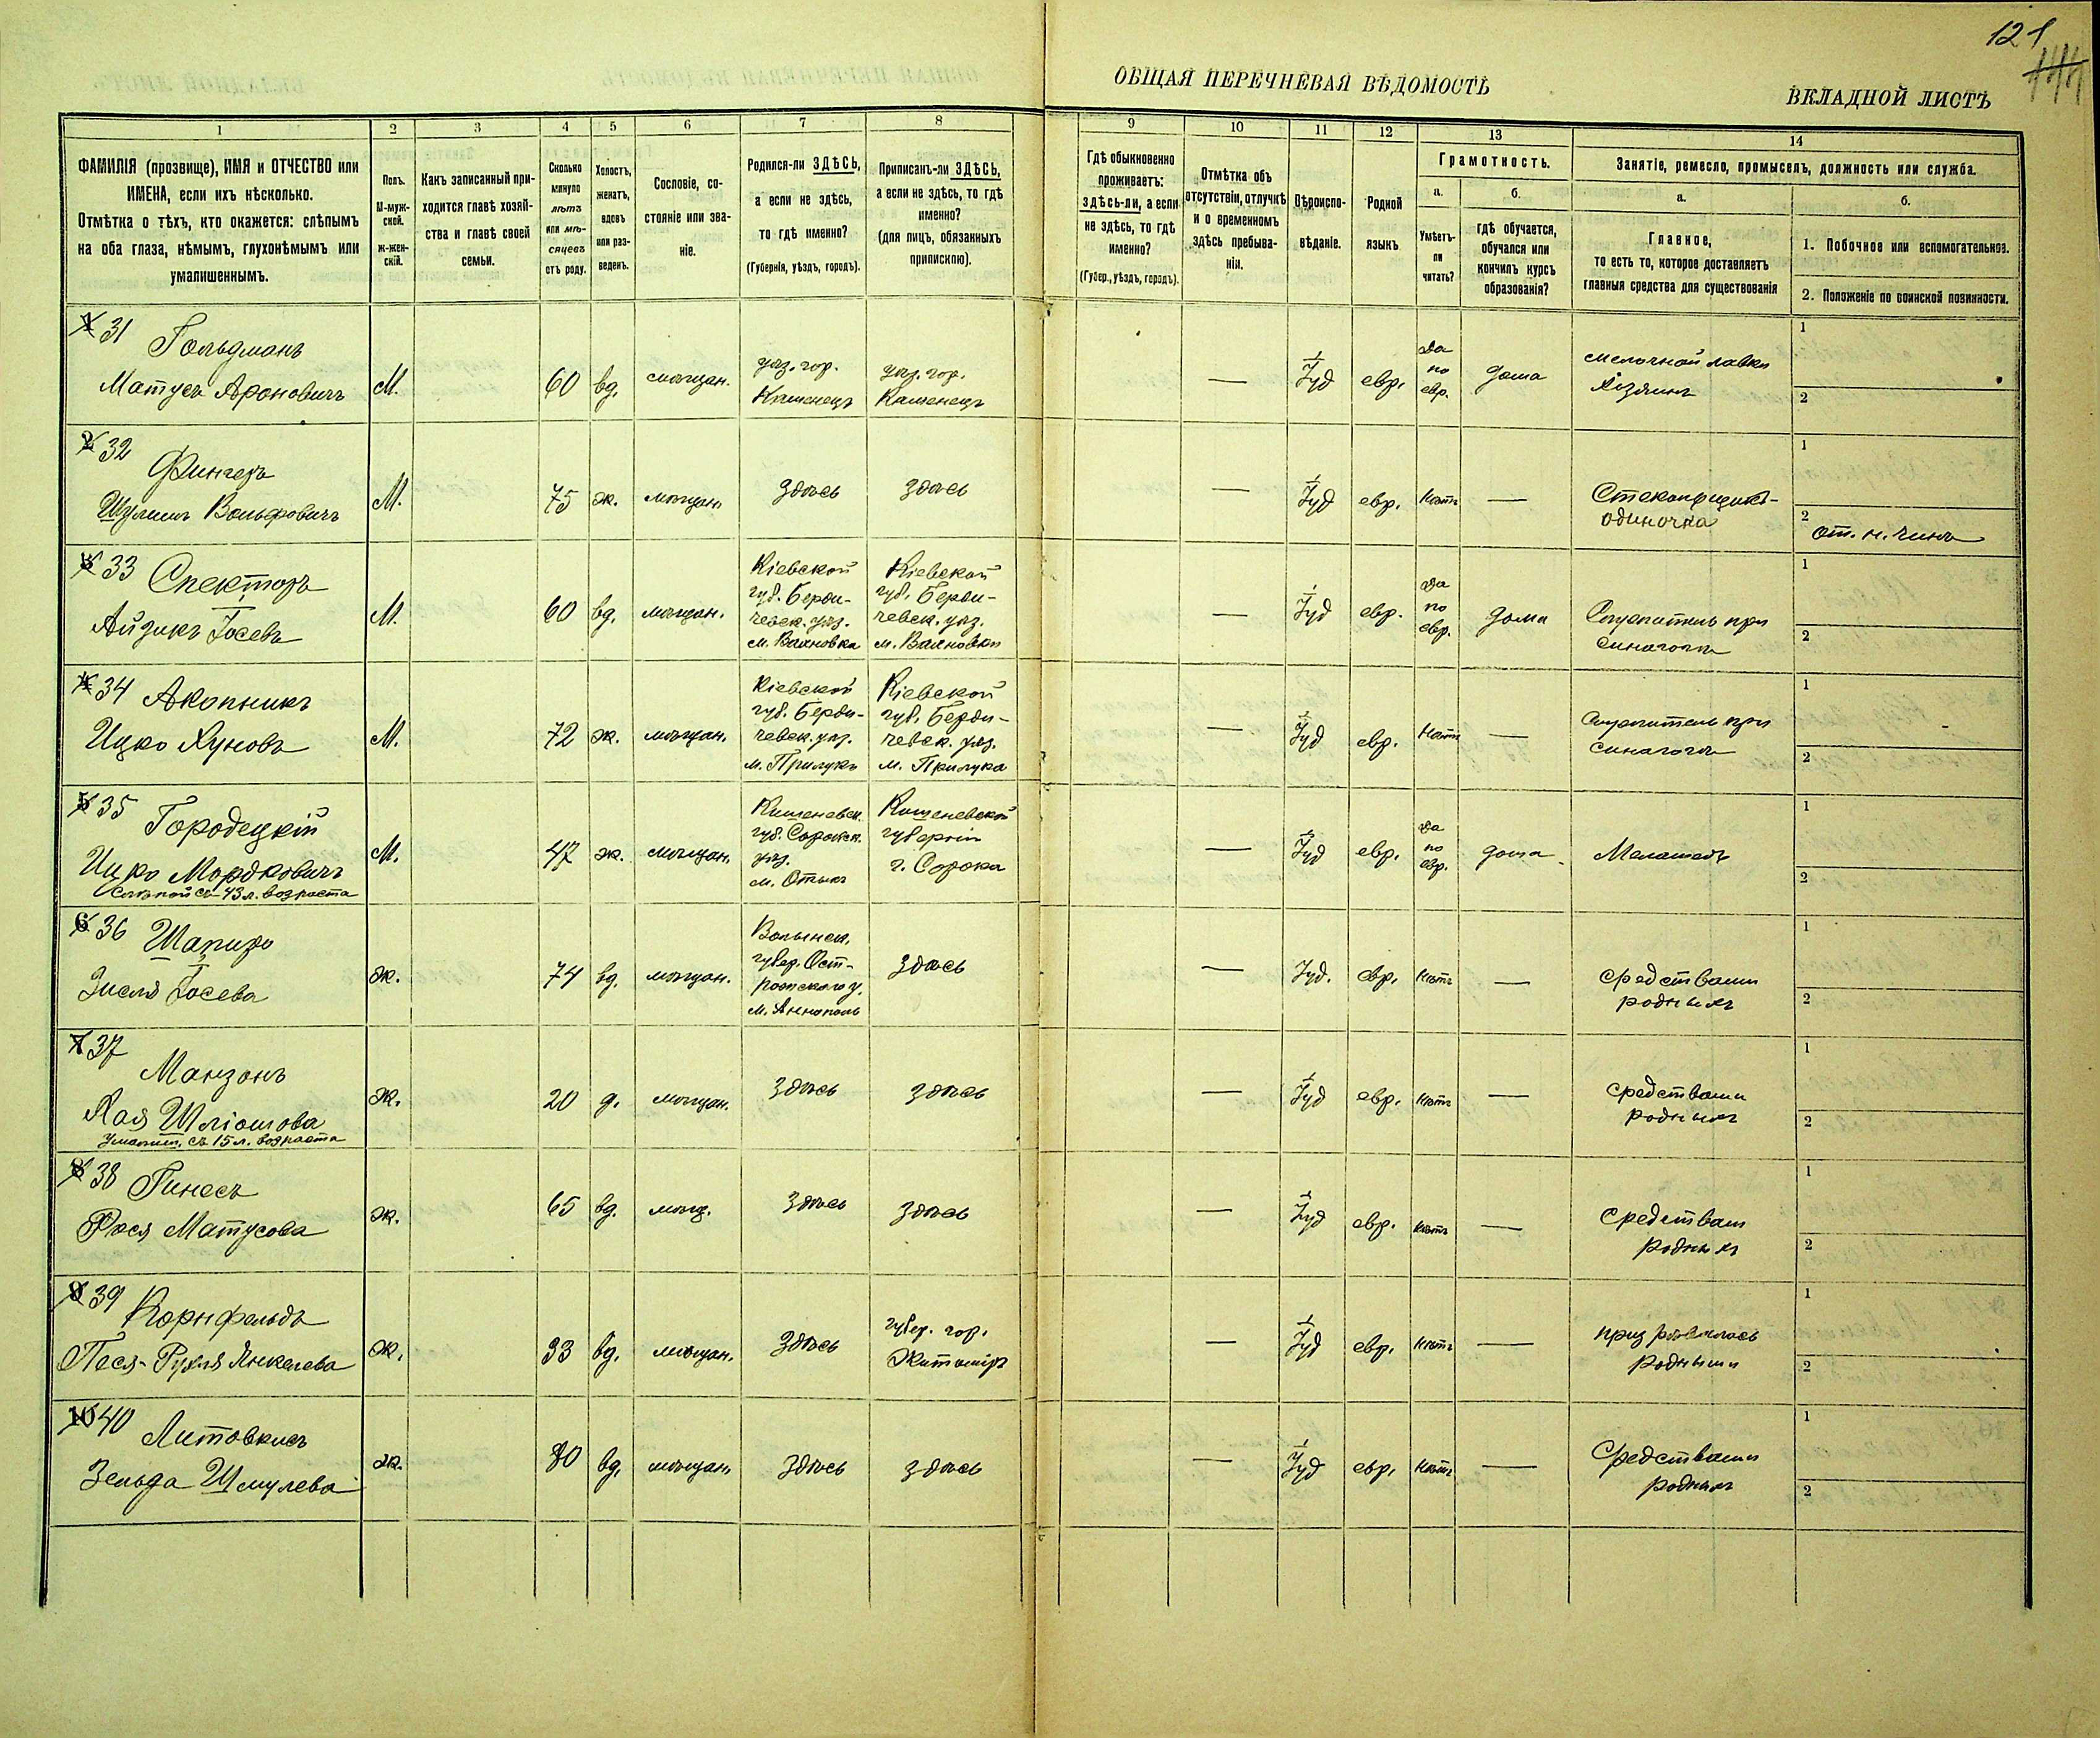 121
144
ОБЩАЯ ПЕРЕЧНЕВАЯ ВѢДОМОСТЬ
ВКЛАДНОЙ ЛИСТЪ
1 2 3 4 5 6 7 8 9 10 11 12 13 14
ФАМИЛІЯ (прозвище), ИМЯ и ОТЧЕСТВО или
ИМЕНА, если ихъ нѣсколько.
Отмѣтка о тѣхъ, кто окажется: слѣпымъ
на оба глаза, нѣмымъ, глухонѣмымъ или
умалишеннымъ.
Полъ.
М-муж-
ской.
ж-жен-
скій.
Какъ записанный при-
ходится главѣ хозяй-
ства и главѣ своей
семьи.
Сколько
минуло
лѣтъ
или мѣ-
сяцевъ
отъ роду.
Холостъ,
женатъ,
вдовъ
или раз-
веденъ.
Сословіе, со-
стояніе или зва-
ніе.
Родился-ли ЗДѢСЬ,
а если не здѣсь,
то гдѣ именно?
(Губернія, уѣздъ, городъ).
Приписанъ-ли ЗДѢСЬ,
а если не здѣсь, то гдѣ
именно?
(для лицъ, обязанныхъ
припискою).
Гдѣ обыкновенно
проживаетъ:
здѣсь-ли, а если
не здѣсь, то гдѣ
именно?
(Губер., уѣздъ, городъ).
Отмѣтка объ
отсутствіи, отлучкѣ
и о временномъ
здѣсь пребыва-
ніи.
Вѣроиспо-
вѣданіе.
Родной
языкъ.
Грамотность.
а.
Умѣетъ-
ли
читать?
б.
гдѣ обучается,
обучался или
кончилъ курсъ
образованія?
Занятіе, ремесло, промыселъ, должность или служба.
а.
Главное,
то есть то, которое доставляетъ
главныя средства для существованія
б.
1. Побочное или вспомогательное.
2. Положеніе по воинской повинности.
1 31 Гольдманъ
Матусъ Ароновичъ
М.
60
вд.
мѣщан.
уѣз. гор.
Каменецъ
уѣз. гор.
Каменецъ
—
Іуд
евр.
Да
по
евр.
дома
мелочной лавки
хозяинъ
1
2
2 32
Фингеръ
Шулимъ Вольфовичъ
М.
75
ж.
мѣщан.
здѣсь
здѣсь
—
Іуд
евр.
Нѣтъ
—
одиночка
1
2
от. н. чинъ
3 33 Спекторъ
Айзикъ Іосевъ
М.
60
вд.
мѣщан.
Кіевской
губ. Берди-
чевск. уѣз.
м. Вахновка
Кіевской
губ. Берди-
чевск. уѣз.
м. Вахновки
—
Іуд
евр.
Да
по
евр.
дома
Служитель при
синагогѣ
1
2
4 34 Акопникъ
Ицко Хуновъ
М.
72
ж.
мѣщан.
Кіевской
губ. Берди-
чевск. уѣз.
м. Прилукъ
Кіевской
губ. Берди-
чевск. уѣз.
м. Прилука
—
Іуд
евр.
Нѣтъ
—
Служитель при
синагогѣ
1
2
5 35 Городецкій
Ицко Мордковичъ
Слѣпой съ 43 л. возраста
М.
47
ж.
мѣщан.
Кишеневск.
губ. Сорокск.
уѣз.
Кишеневской
губерніи
г. Сорока
—
Іуд
евр.
Да
по
евр.
дома
Меламедъ
1
2
6 36 Шапиро
Зисля Іосева
ж.
74
вд.
мѣщан.
Волынск.
губер. Ост-
рожского у.
м. Аннополь
здѣсь
—
Іуд.
евр.
Нѣтъ
—
средствами
родныхъ
1
2
7 37
Манзонъ
Хая Шліомова
Умалиш. съ 15 л. возраста
ж.
20
д.
мѣщан.
здѣсь
здѣсь
—
Іуд
евр.
Нѣтъ
—
средствами
родныхъ
1
2
8 38 Гинесъ
Рося Матусова
ж.
65
вд.
мѣщ.
здѣсь
здѣсь
—
Іуд
евр.
Нѣтъ
—
средствам
родныхъ
1
2
9 39 Корнфельдъ
Песя-Рухля Янкелева
ж.
93
вд.
мѣщан.
здѣсь
губер. гор.
Житоміръ
—
Іуд
евр.
Нѣтъ
—
родными
1
2
10 40 Литовкисъ
Зельда Шмулева
ж.
80
вд.
мѣщан.
здѣсь
здѣсь
—
Іуд
евр.
Нѣтъ
—
Средствами
родныхъ
1
2